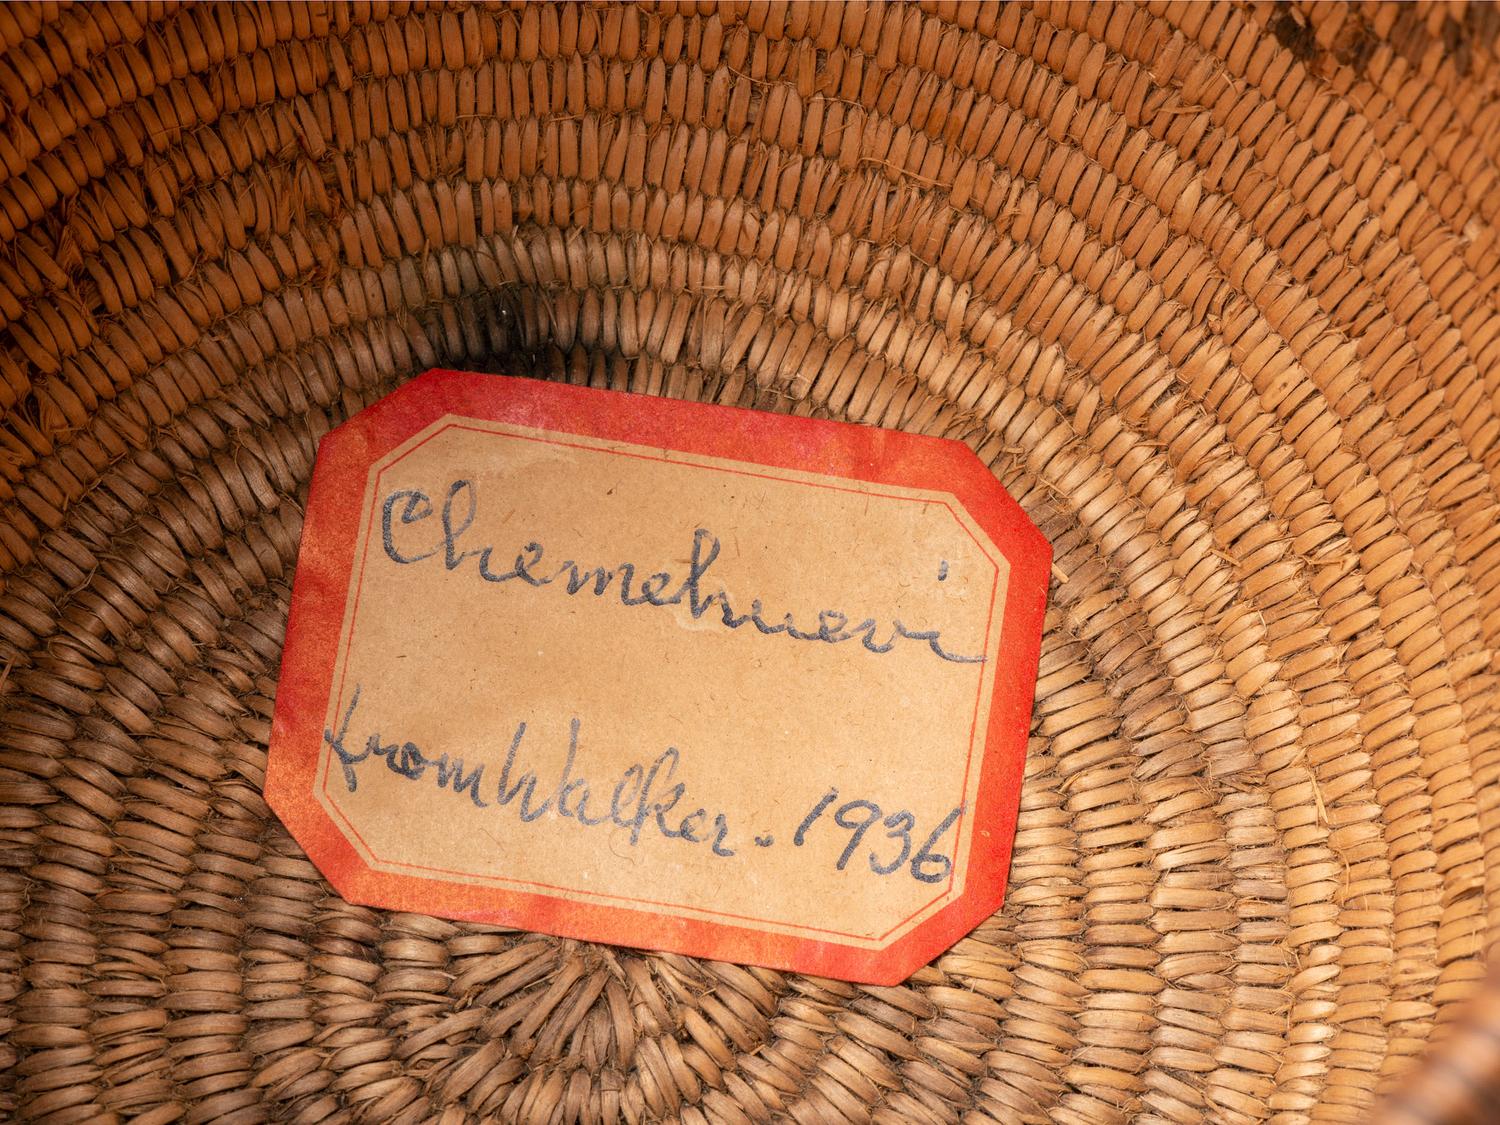 Chemehuevi
from Walker. 1936